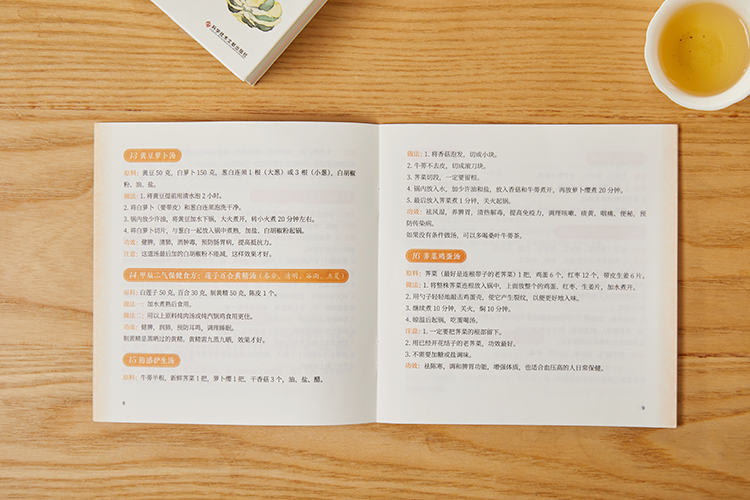 科学技术文献出版社
13 黄豆萝卜汤
原料：黄豆 50 克，白萝卜 150 克，葱白连须 1 根（大葱）或 3 根（小葱），白胡椒
粉，油，盐。
做法：1. 将黄豆提前用清水泡 2 小时。
2. 将白萝卜（要带皮）和葱白连须泡洗干净。
3. 锅内放少许油，将黄豆加水下锅，大火煮开，转小火煮 20 分钟左右。
4. 将白萝卜切片，与葱白一起放入锅中煮熟，加盐，白胡椒粉起锅。
功效：健脾，清肺，消肿毒，预防肠胃病，提高抵抗力。
注意：这道汤最后加的白胡椒粉不能减，这样效果才好。
14 甲辰二气保健食方：莲子百合黄精汤（春分、清明、谷雨、立夏）
原料：白莲子 50 克，百合 30 克，制黄精 50 克，陈皮 1 个。
做法一：加水煮熟后食用。
做法二：可以上原料炖肉汤或炖汽锅鸡食用更佳。
功效：健脾，润肺，预防耳鸣，调理睡眠。
制黄精是黑晒过的黄精，黄精需九蒸九晒，效果才好。
15 防感护生汤
原料：牛蒡半根，新鲜荠菜 1 把，萝卜缨 1 把，干香菇 3 个，油，盐，醋。
8
做法：1. 将香菇泡发，切成小块。
2. 牛蒡不去皮，切成滚刀块。
3. 荠菜切段，一定要留根。
4. 锅内放入水，加少许油和盐，放入香菇和牛蒡煮开，再放萝卜缨煮 20 分钟。
5. 最后放入荠菜煮 1 分钟，关火起锅。
功效：祛风湿，养脾胃，清热解毒，提高免疫力，调理咳嗽，痰黄，咽痛，便秘，预
防传染病。
如果没有条件做汤，可以多喝桑叶牛蒡茶。
16 荠菜鸡蛋汤
原料：荠菜（最好是连根带子的老荠菜）1 把，鸡蛋 6 个，红枣 12 个，带皮生姜 6 片。
做法：1. 将整株荠菜连根放入锅中，上面放整个的鸡蛋，红枣，生姜片，加水煮开。
2. 用勺子轻轻地敲击鸡蛋壳，使它产生裂纹，以便更好地入味。
3. 继续煮 10 分钟，关火，焖 10 分钟。
4. 晾温后起锅，吃蛋喝汤。
注意：1. 一定要把荠菜的根部留下。
2. 用已经开花结子的老荠菜，功效最好。
3. 不需要加糖或盐调味。
功效：祛陈寒，调和脾胃功能，增强体质，也适合血压高的人日常保健。
9